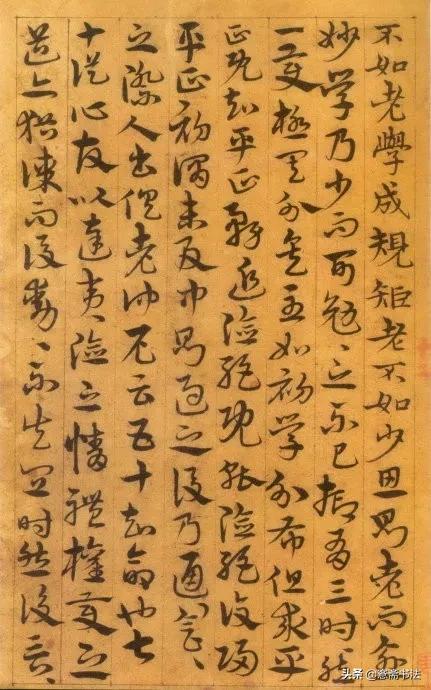 不如老學成規矩老不如少思則老而愈
妙學乃少而可勉〻之不已抑有三時然
一變極其分矣至如初學分布但求平
正既知平正務追險絕既能險絕復歸
平正初謂未及中則過之後乃通會〻
之際人書俱老仲尼云五十知命也七
十從心故以達夷險之情體權變之
道亦猶謀而後動〻不失宜時然後言〻
头条 @意斋书法